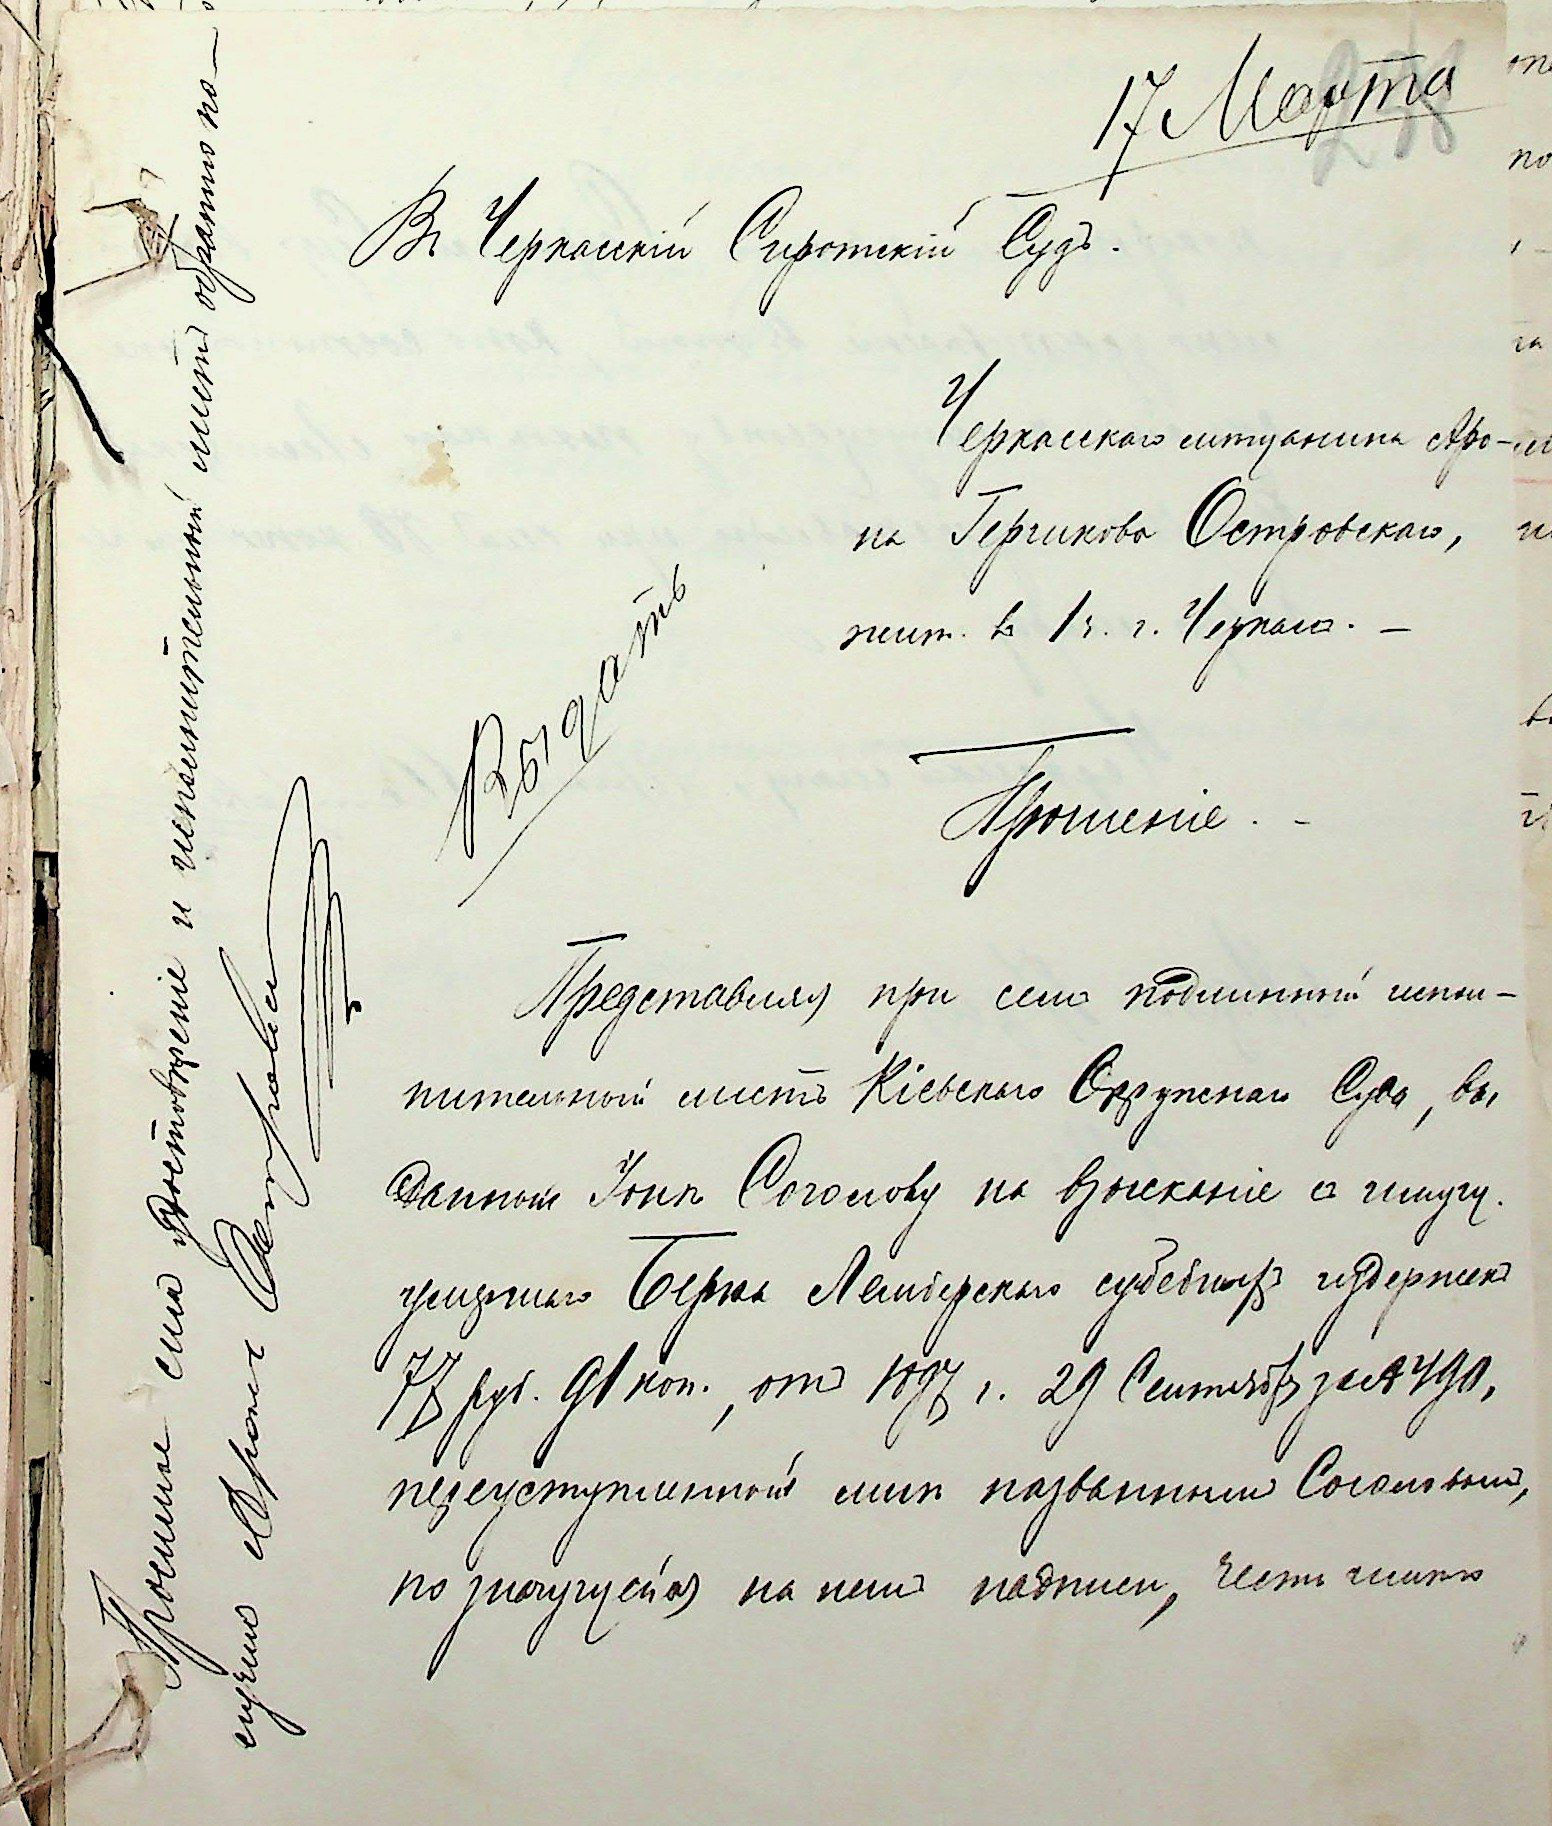 17 Марта
238
Въ Черкасскій Сиротскій Судъ.
Черкасскаго мѣщанина Аро-
на Гершкова Островскаго,
жит. въ 1 ч. г. Черкасъ. —
Выдать
Прошеніе. -
Представляя при семъ подлинный испол-
нительный листъ Кіевскаго Окружнаго Суда, вы
данный Іонѣ Соголову на взысканіе съ имущ.
умершаго Берка Лемберскаго судебныхъ издержекъ
77 руб. 91 коп., отъ 1897 г. 29 Сентября за № 490,
переуступленный мнѣ названнымъ Соголовымъ,
по значущейся на немъ надписи, честь имѣю
Прошеніе сіе удостовѣреніе и исполнительный листъ обратно по—
лучилъ Аронъ Островскій